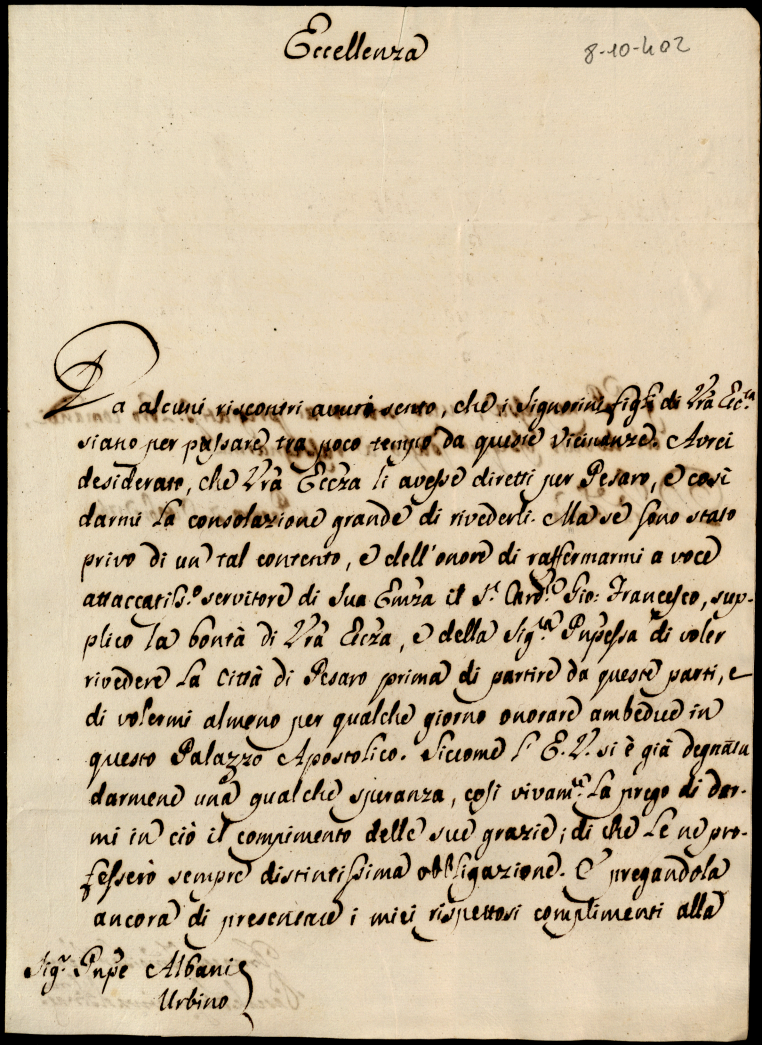 Eccellenza
8-10-402
Da alcuni riscontri avuti sento, che i Signorini figli di Vrã Ecc.za
siano per passare tra poco tempo da queste vicinanze. Avrei
desiderato, che Vrã Eccza li avesse diretti per Pesaro, e così
darmi la consolazione grande di rivederli. Ma se sono stato
privo di un tal contento, e dell'onore di raffermarmi a voce
attaccatiss.o servitore di Sua Emza il S.r Card.le Gio: Francesco, sup-
plico la bontà di Vrã Eccza, e della Sig.ra Pnpessa di voler
rivedere la Città di Pesaro prima di partire da queste parti, e
di volermi almeno per qualche giorno onorare ambedue in
questo Palazzo Apostolico. Siccome l'E.V. si è già degnata
darmene una qualche speranza, così vivam.te La prego di dar-
mi in ciò il compimento delle sue grazie; di che Le ne pro-
fesserò sempre distintissima obbligazione. E pregandola
ancora di presentare i miei rispettosi complimenti alla
Sig.r Pnpe Albani
Urbino